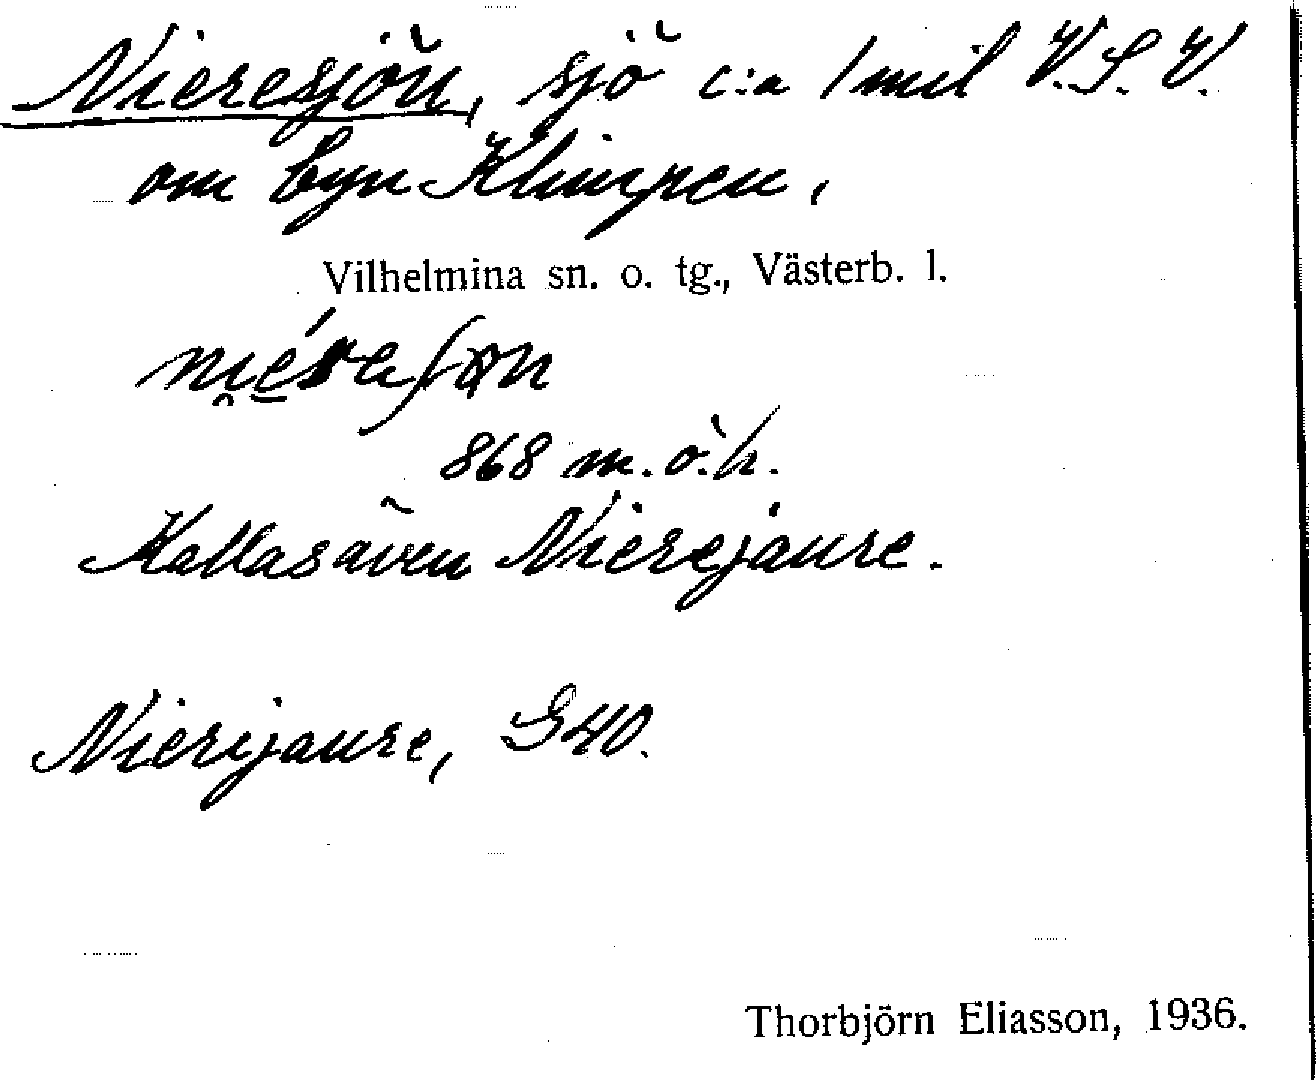 Nieresjön, sjö c:a 1 mil V.S.V.
om byn Klimpen,
Vilhelmina sn. o. tg., Västerb. l.
868 m. ö. h.
Kallas även Nierejaure.
Nierijaure, G40.
Thorbjörn Eliasson, 1936.